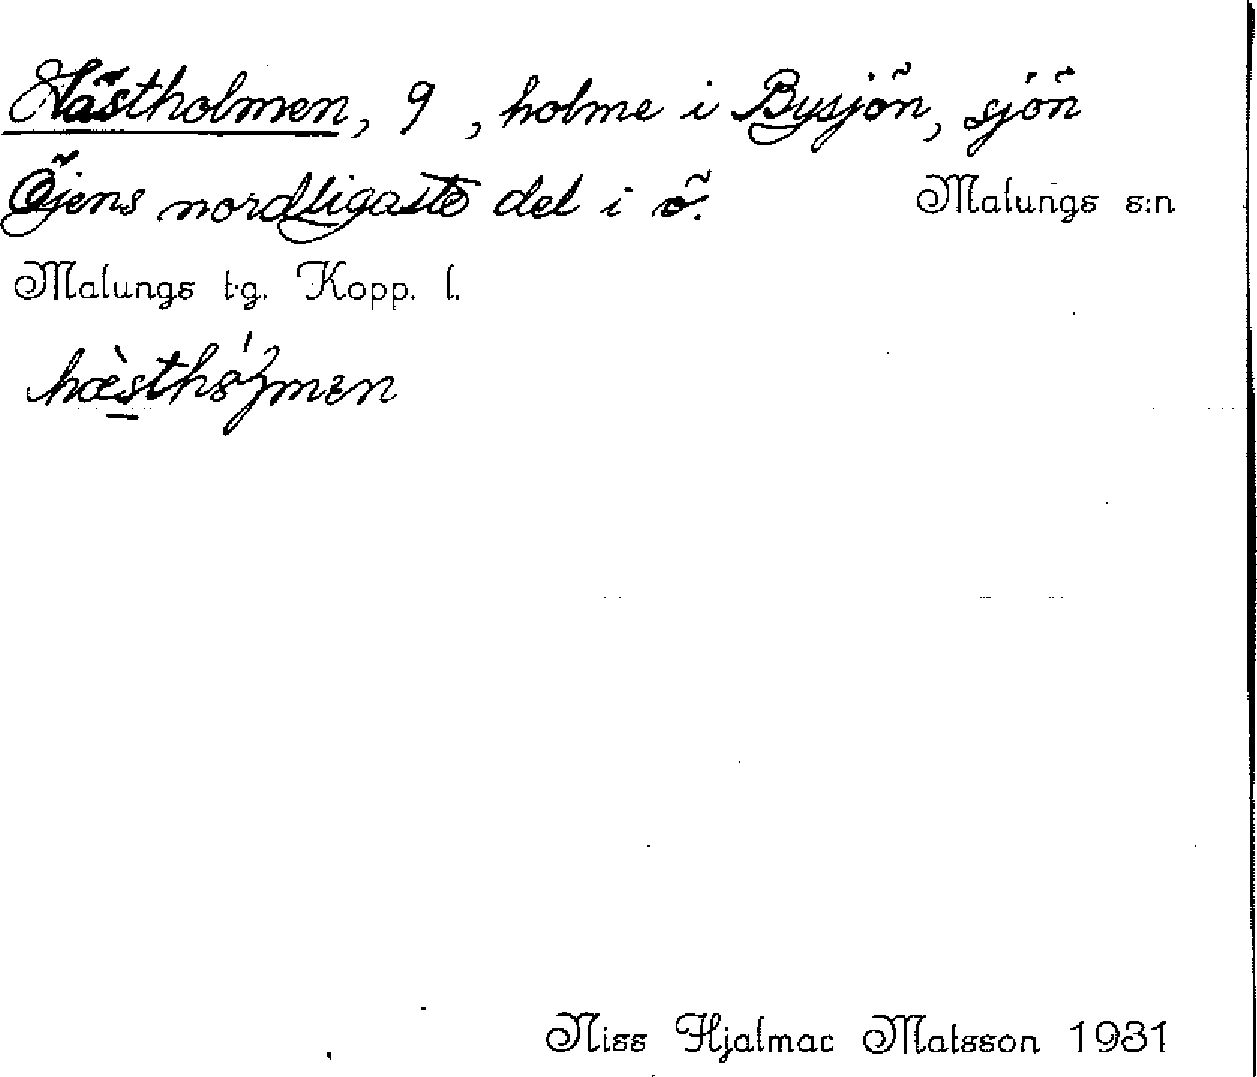 Hästholmen, 9, holme i Bysjön, sjön
Öjens nordligaste del i ö. Malungs s:n
Malungs t.g. Kopp. l.
hæ̀sthɷ́ʅmen
Niss Hjalmar Matsson 1931